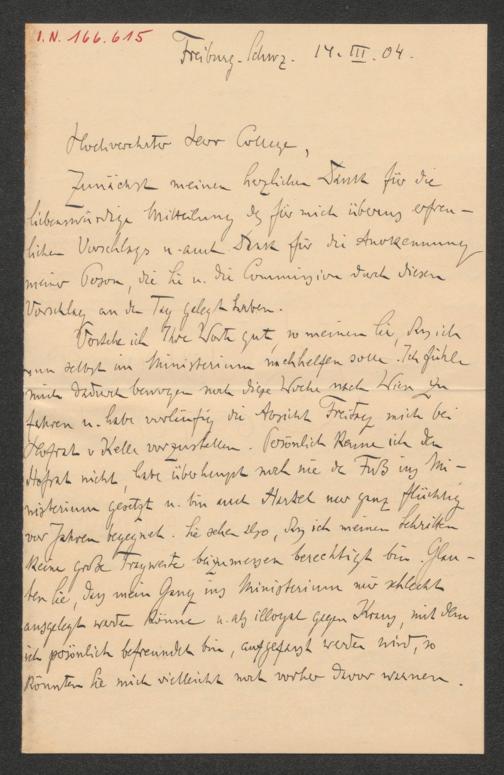 I.N. 166.615
Freiburg-Schwz. 14. III. 04.
Hochverehrter Herr College,
Zunächst meinen herzlichen Dank für die
liebenswürdige Mitteilung des für mich überaus erfreu-
lichen Vorschlags u. auch Dank für die Anerkennung
meiner Person, die Sie u. die Commission durch diesen
Vorschlag an den Tag gelegt haben.
Verstehe ich Ihre Worte gut, so meinen Sie, dass ich
nun selbst im Ministerium nachhelfen solle. Ich fühle
mich dadurch bewogen noch diese Woche nach Wien zu
fahren u. habe vorläufig die Absicht Freitag mich bei
Hofrat v Kelle vorzustellen. Persönlich kenne ich den
Hofrat nicht, habe überhaupt noch nie den Fuß ins Mi-
nisterium gesetzt u. bin auch Hartel nur ganz flüchtig
vor Jahren begegnet. Sie sehen also, dass ich meinen Schritten
keine große Tragweite beizumessen berechtigt bin. Glau-
ben Sie, dass mein Gang ins Ministerium nur schlecht
ausgelegt werden könne u. als illoyal gegen Kraus, mit dem
ich persönlich befreundet bin, aufgefasst werden wird, so
könnten Sie mich vielleicht noch vorher davor warnen.